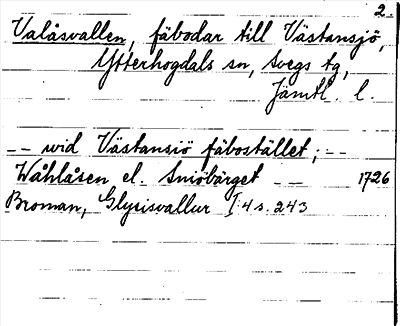 2.
Valåsvallen, fäbodar till Västansjö,
Ytterhogdals sn, Svegs tg,
Jämtl. l.
-- wid Västansiö fäbostället; --
Wåhlåsen el. Sniöbärget -- 1726
Broman, Glysisvallur I:4 s. 243